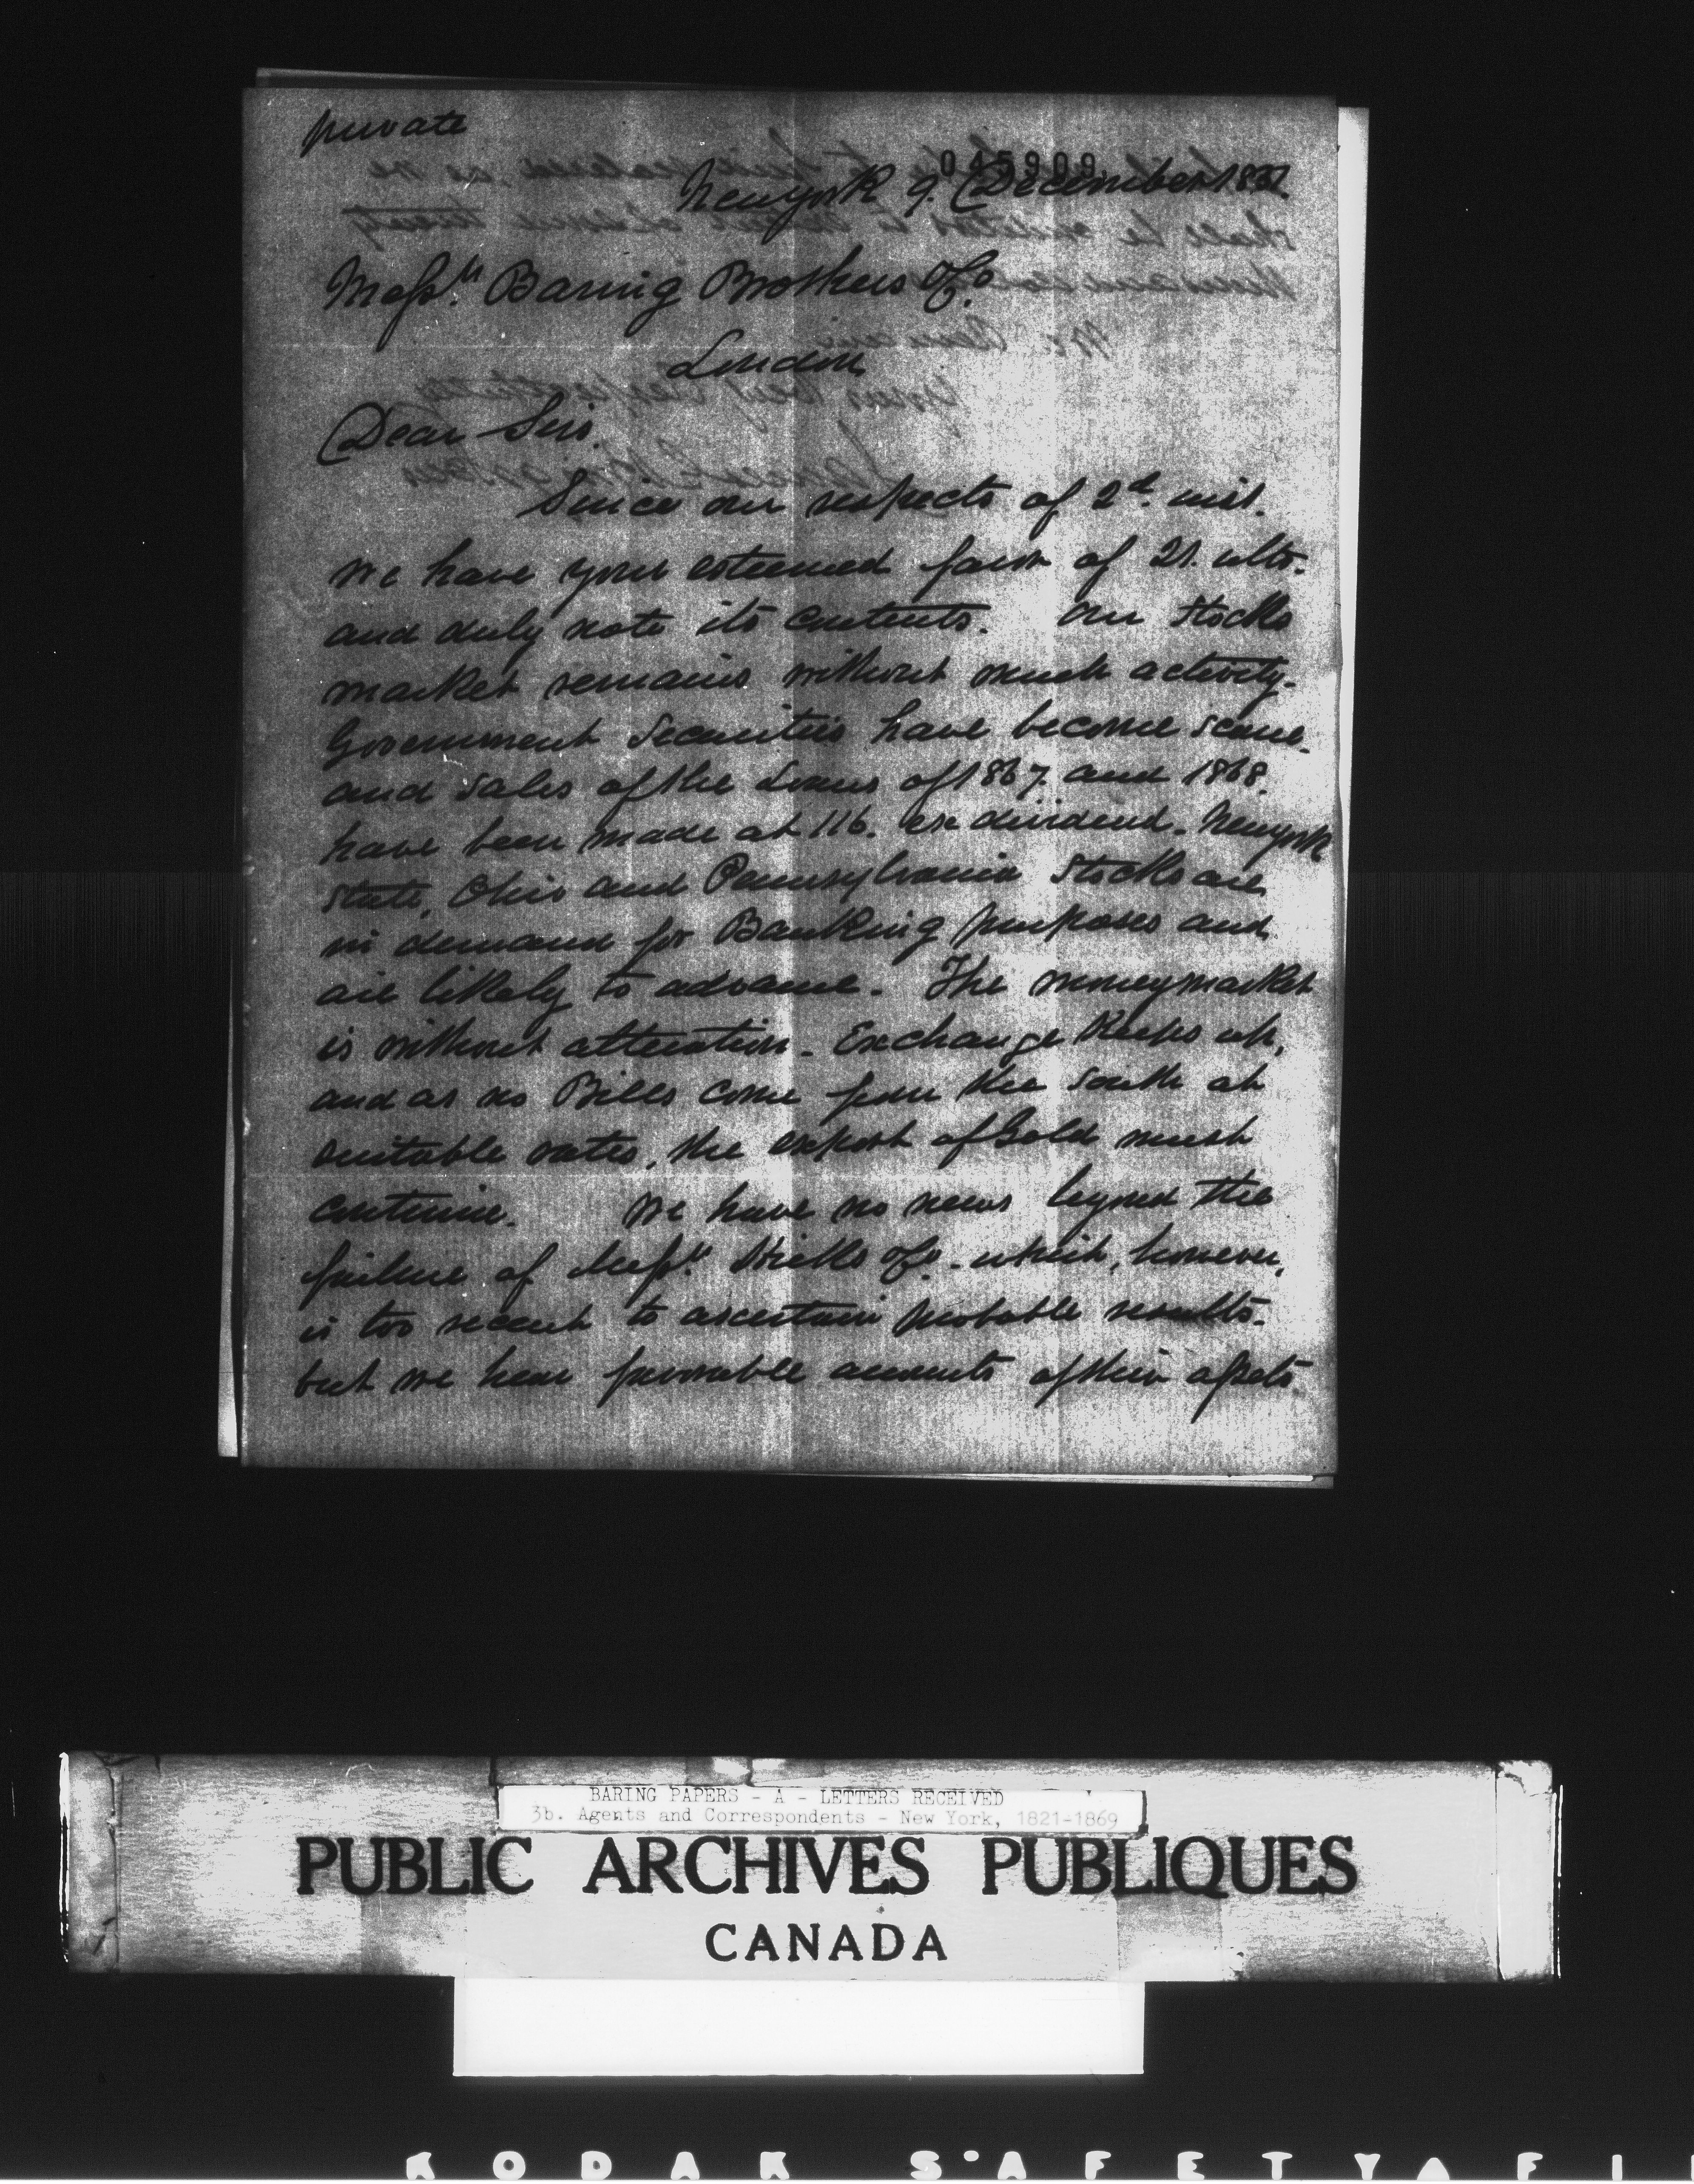 private
045909
Newyork 9. December 1851.
Messrs Baring Brothers & Co.
London
Dear Sirs.
Since our respects of 2d. inst.
we have your esteemed favor of 21. ulto.
and duly note its contents. Our Stocks
market remains without much activity.
Government Securities have become scarce
and sales of the Loans of 1867. and 1868.
have been made at 116. ex dividend. Newyork
State, Ohio and Pennsylvania Stocks are
in demand for Banking purposes and
are likely to advance. The moneymarket
is without alteration. Exchange Keeps up,
and as no Bills come from the South at
suitable rates, the export of Gold must
continue. We have no news beyond the
failure of Messrs. & Co. which, however,
is too recent to ascertain probable results.
but we hear favorable accounts of their assets
BARING PAPERS - A - LETTERS RECEIVED
3b. Agents and Correspondents - New York, 1821-1869
PUBLIC ARCHIVES PUBLIQUES
CANADA
KODAK S'AFETY A FI